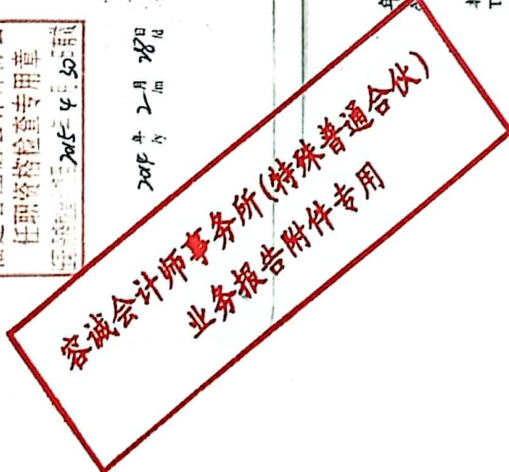 任职资格检查专用章
2015 4 30
2014年2月28日
/y /m /d
容诚会计师事务所(特殊普通合伙)
业务报告附件专用